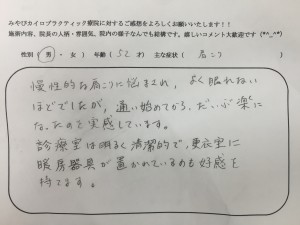 みやびカイロプラクティック療院に対するご感想をよろしくお願いいたします!!
施術内容、院長の人柄・雰囲気、院内の様子なんでも結構です。嬉しいコメント大歓迎です(*^_^*)
性別( 男 ・ 女 ) 年齢( 52 才) 主な症状( 肩こり )
慢性的な肩こりに悩まされ、よく眠れない
ほどでしたが、通い始めてから、だいぶ楽に
なったのと実感しています。
診療室は明るく清潔的で、更衣室に
暖房器具が置かれているのも好感を
持てます。